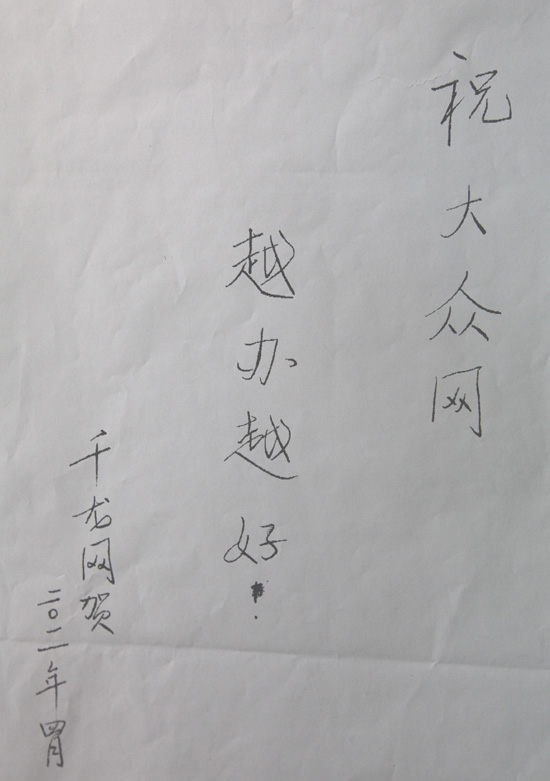 祝大众网
越办越好!
千龙网贺
二〇一一年四月